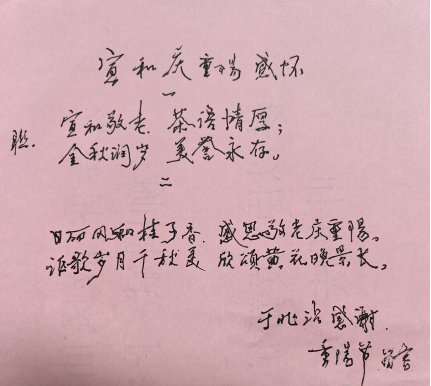 宣和庆重陽感怀
一
联.
宣和敬老 茶语情厚；
金秋润岁 美誉永存。
二
日丽风和桂子香，感恩敬老庆重陽。
讴歌岁月千秋美 欣颂黄花晚景长。
于兆 感谢
重陽节